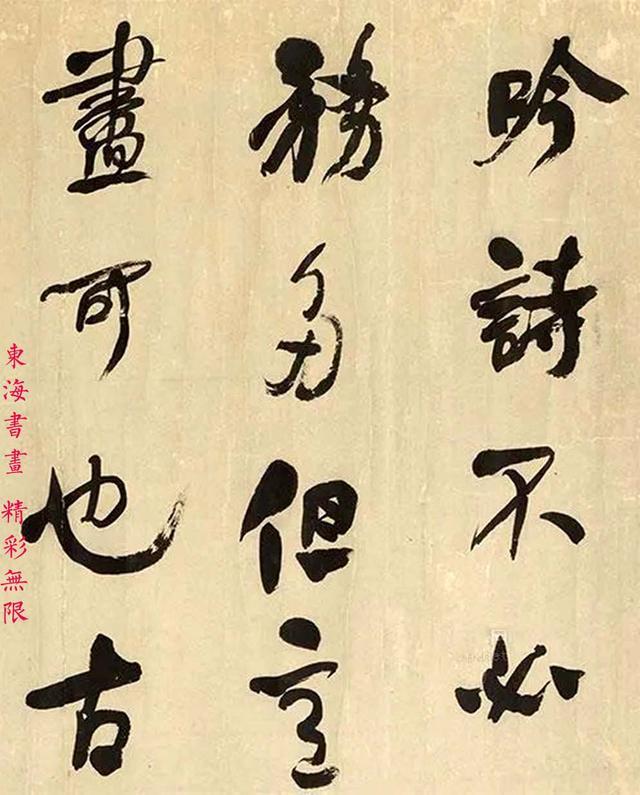 吟詩不必
務多但意
盡可也古
東海書畫 精彩無限